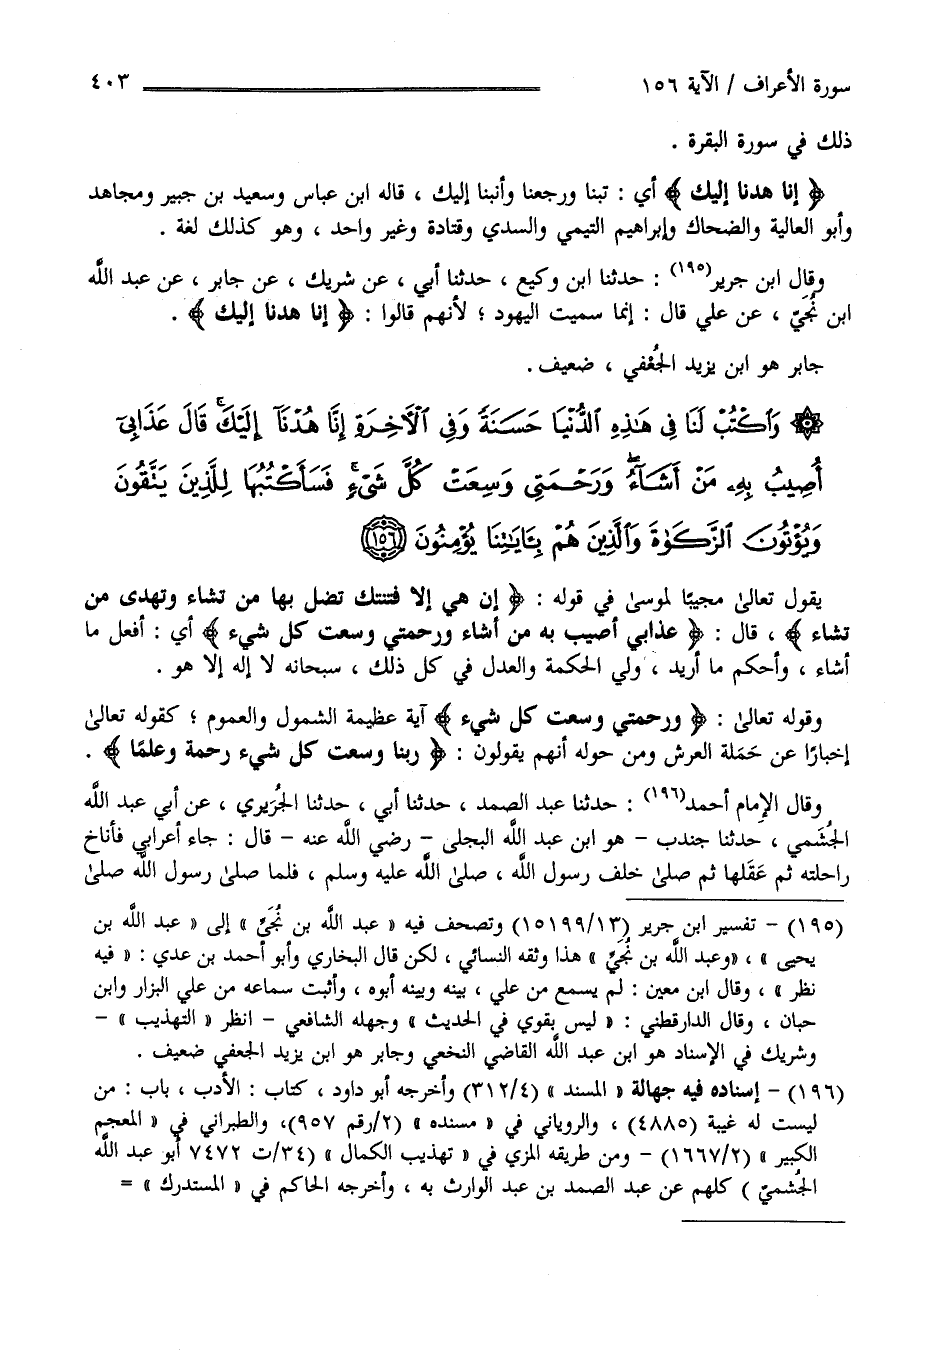 سورة الأعراف / الآية ١٥٦ ٤٠٣
ذلك في سورة البقرة .
﴿ إنا هدنا إليك ﴾ أي : تبنا ورجعنا وأنبنا إليك ، قاله ابن عباس وسعيد بن جبير ومجاهد
وأبو العالية والضحاك وإبراهيم التيمي والسدي وقتادة وغير واحد ، وهو كذلك لغة .
وقال ابن جرير(١٩٥) : حدثنا ابن وكيع ، حدثنا أبي ، عن شريك ، عن جابر ، عن عبد اللَّه
ابن نُجَيّ ، عن علي قال : إنما سميت اليهود ؛ لأنهم قالوا : ﴿ إنا هدنا إليك ﴾ .
جابر هو ابن يزيد الجُعْفي ، ضعيف .
۞ وَٱكْتُبْ لَنَا فِى هَـٰذِهِ ٱلدُّنْيَا حَسَنَةً وَفِى ٱلْأَخِرَةِ إِنَّا هُدْنَآ إِلَيْكَ ۚ قَالَ عَذَابِىٓ
أُصِيبُ بِهِۦ مَنْ أَشَآءُ ۖ وَرَحْمَتِى وَسِعَتْ كُلَّ شَىْءٍ ۚ فَسَأَكْتُبُهَا لِلَّذِينَ يَتَّقُونَ
وَيُؤْتُونَ ٱلزَّكَوٰةَ وَٱلَّذِينَ هُم بِـَٔايَـٰتِنَا يُؤْمِنُونَ ﴿١٥٦﴾
يقول تعالىٰ مجيبًا لموسىٰ في قوله : ﴿ إن هي إلا فتنتك تضل بها من تشاء وتهدى من
تشاء ﴾ ، قال : ﴿ عذابي أصيب به من أشاء ورحمتي وسعت كل شيء ﴾ أي : أفعل ما
أشاء ، وأحكم ما أريد ، ولي الحكمة والعدل في كل ذلك ، سبحانه لا إله إلا هو .
وقوله تعالىٰ : ﴿ ورحمتي وسعت كل شيء ﴾ آية عظيمة الشمول والعموم ؛ كقوله تعالىٰ
إخبارًا عن حَمَلة العرش ومن حوله أنهم يقولون : ﴿ ربنا وسعت كل شيء رحمة وعلمًا ﴾ .
وقال الإمام أحمد(١٩٦) : حدثنا عبد الصمد ، حدثنا أبي ، حدثنا الجُرَيري ، عن أبي عبد اللَّه
الجُشَمي ، حدثنا جندب – هو ابن عبد اللَّه البجلى – رضي اللَّه عنه – قال : جاء أعرابي فأناخ
راحلته ثم عَقَلها ثم صلىٰ خلف رسول اللَّه ، صلىٰ اللَّه عليه وسلم ، فلما صلىٰ رسول اللَّه صلىٰ
(١٩٥) – تفسير ابن جرير (١٥١٩٩/١٣) وتصحف فيه « عبد اللَّه بن نُجَيّ » إلى « عبد اللَّه بن
يحيى » ، «وعبد اللَّه بن نُجَيّ » هذا وثقه النسائي ، لكن قال البخاري وأبو أحمد بن عدي : « فيه
نظر » ، وقال ابن معين : لم يسمع من علي ، بينه وبينه أبوه ، وأثبت سماعه من علي البزار وابن
حبان ، وقال الدارقطني : « ليس بقوي في الحديث » وجهله الشافعي – انظر « التهذيب » –
وشريك في الإسناد هو ابن عبد اللَّه القاضي النخعي وجابر هو ابن يزيد الجعفي ضعيف .
(١٩٦) – إسناده فيه جهالة « المسند » (٣١٢/٤) وأخرجه أبو داود ، كتاب : الأدب ، باب : من
ليست له غيبة (٤٨٨٥) ، والروياني في « مسنده » (٢/رقم ٩٥٧)، والطبراني في « المعجم
الكبير » (١٦٦٧/٢) – ومن طريقه المزي في « تهذيب الكمال » (٣٤/ت ٧٤٧٢ أبو عبد اللَّه
الجُشميّ ) كلهم عن عبد الصمد بن عبد الوارث به ، وأخرجه الحاكم في « المستدرك » =